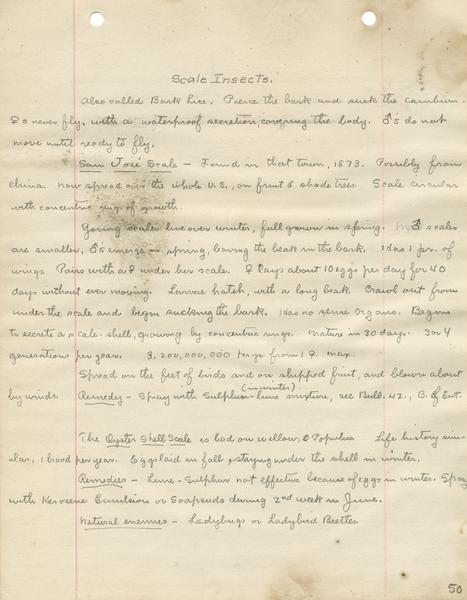 Scale Insects.
Also called Bark Lice. Pierce the bark and suck the cambium.
♀s never fly, with a waterproof secretion covering the body. ♂'s do not
move until ready to fly.
San José Scale — Found in that town, 1873. Possibly from
China. Now spread over the whole U.S., on fruit & shade trees. Scale circular
with concentric rings of growth.
Young scales live over winter, full grown in spring. ♂ scales
are smaller, ♂'s emerge in spring, leaving the beak in the bark. Has 1 pr. of
wings. Pairs with a ♀ under her scale. ♀ lays about 10 eggs per day for 40
days without ever moving. Larvae hatch, with a long beak. Crawl out from
under the scale and begin sucking the bark. Has no sense organs. Begins
to secrete a scale-shell, growing by concentric rings. Mature in 30 days. 3 or 4
generations per year. 3,200,000,000 per yr. from 1 ♀. max.
Spread on the feet of birds and on shipped fruit, and blown about
by winds. Remedy — Spray with Sulphur-lime mixture, (in winter) see Bull. 42., B. of Ent.
The Oyster Shell Scale is bad on willow, & Populus. Life history sim-
ilar, 1 brood per year. Eggs laid in fall, staying under the shell in winter.
Remedies — Lime-Sulphur not effective because of eggs in winter. Spray
with Kerosene Emulsion or Soapsuds during 2nd week in June.
Natural enemies — Ladybugs or Ladybird Beetles.
50